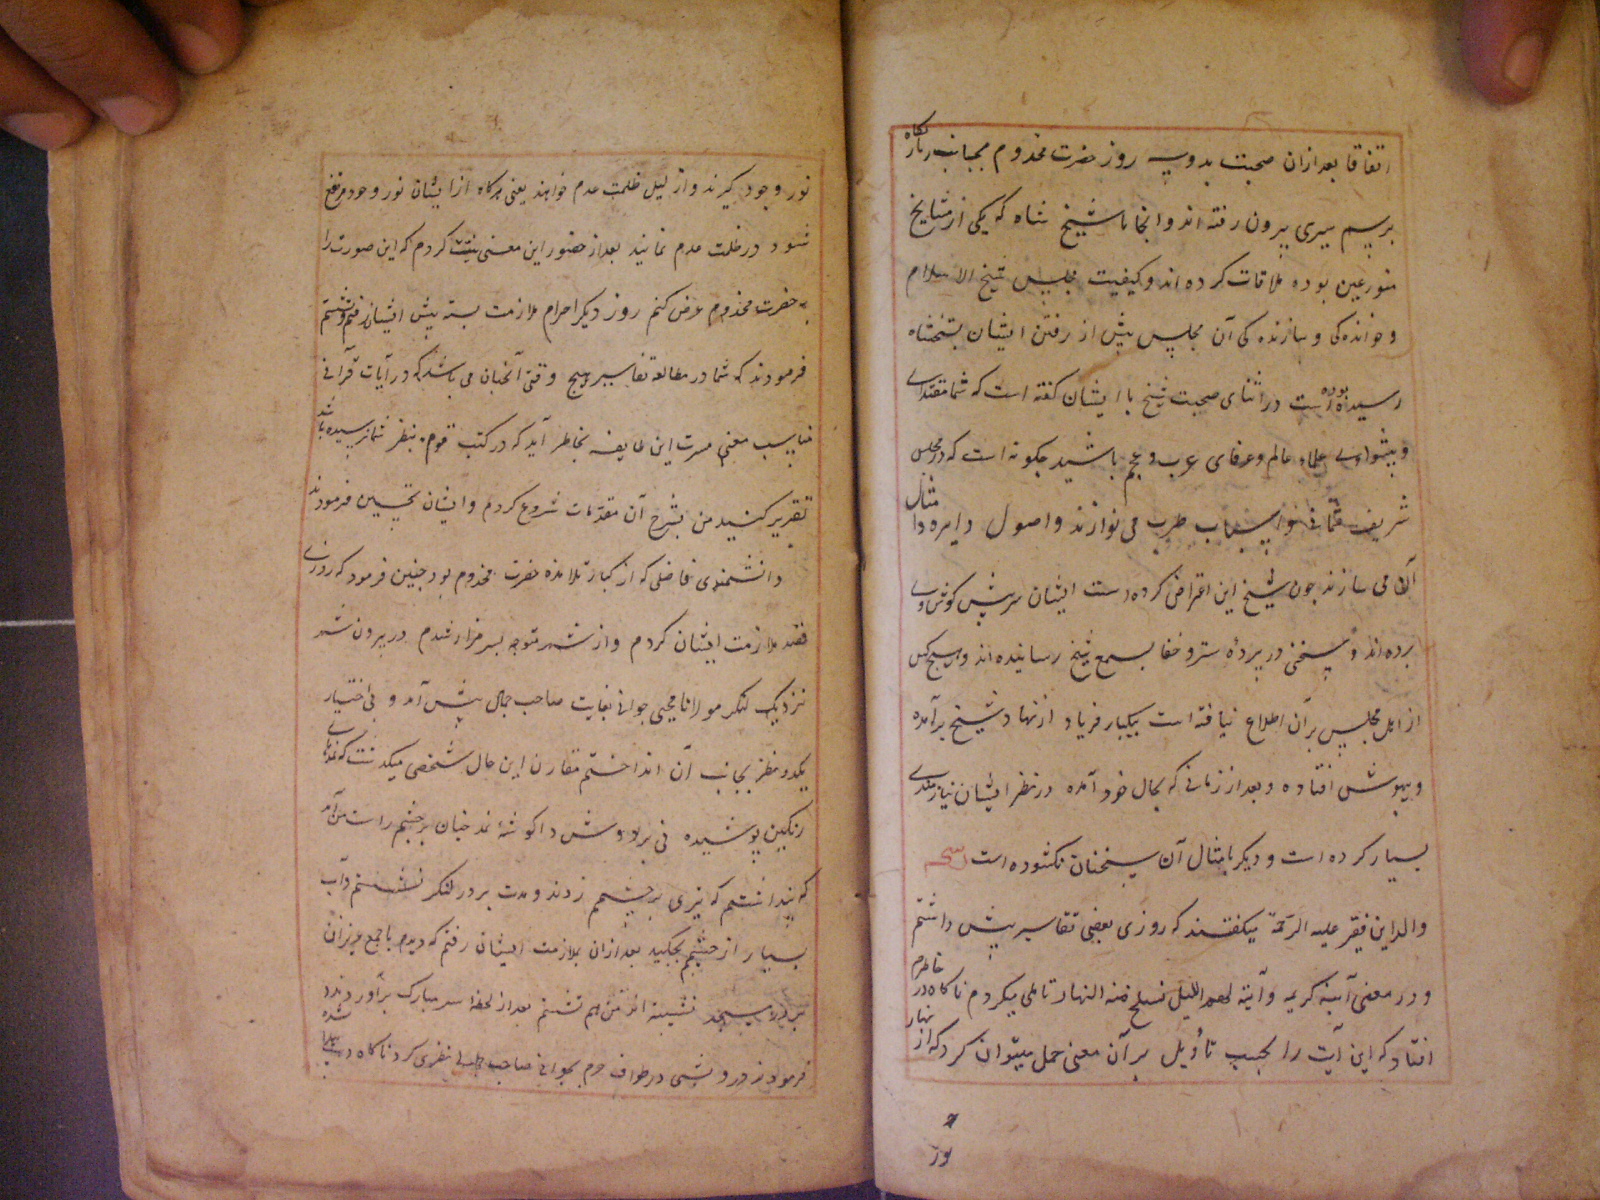 اتفاقا بعد ازان صحبت بدو سه روز حضرت مخدوم بجانب زیارتگاه
برسم سیری بیرون رفته اند و انجا با شیخ شاه که یکی از مشایخ
متورعین بوده ملاقات کرده اند و کیفیت مجلس شیخ الاسلام
و خوانده کی و سازنده کی آن مجلس پیش از رفتن ایشان بشیخ شاه
رسیده بوده است در اثنای صحبت شیخ با ایشان کفته است که شما مقتدای
و پیشوای علماء عالم و عرفای عرب و عجم باشید چکونه است که در مجلس
شریف شما نی و اسباب طرب می نوازند و اصول دایره و امثال
آن می سازند چون شیخ این اعتراض کرده است ایشان سر پیش کوش وی
برده اند و سخنی در پردهٔ ستر و خفا بسمع شیخ رسانیده اند و هیچ کس
از اهل مجلس بر آن اطلاع نیافته است بیکبار فریاد از نهاد شیخ برآمده
و بیهوش افتاده و بعد از زمانی که بحال خود آمده در نظر ایشان نیازمندی
بسیار کرده است و دیکر بامثال آن سخنان نکشوده است
والد این فقیر علیه الرحمة میکفتند که روزی بعضی تفاسیر پیش داشتم
و در معنی آیهٔ کریمه و آیة لهم اللیل نسلخ منه النهار تاملی میکردم ناکاه در خاطرم
افتاد که این آیت را بحسب تأویل بر آن معنی حمل میتوان کرد که از نهار
نور
نور وجود کیرند و از لیل ظلمت عدم خواهند یعنی هرکاه از ایشان نور وجود مرتفع
شود در ظلمت عدم نمانید بعد از حضور این معنی نیت کردم که این صورت را
بحضرت مخدوم عرض کنم روز دیکر احرام ملازمت بسته پیش ایشان رفتم و نشستم
فرمودند که شما در مطالعه تفاسیر هیچ وقتی آنچنان می باشد که در آیات قرآنی
مناسب معنی مشرب این طایفه بخاطر آید که در کتب قوم بنظر شما نرسیده باشد
تقریر کنید من بشرح آن مقدمات شروع کردم و ایشان تحسین فرمودند
دانشمندی فاضلی که از کبار تلامذه حضرت مخدوم بود چنین فرمود که روزی
قصد ملازمت ایشان کردم و از شهر متوجه سر مزار شدم در بیرون شهر
نزدیک لنکر مولانا محیی جوانی بغایت صاحب جمال پیش آمد و بی اختیار
یکدو نظر بجانب آن انداختم مقارن این حال شخصی میکذشت که نمدهای
رنکین پوشیده نی بر دوش و کوشهٔ نمد چنان بر چشم راست من آمد
که پنداشتم که تیری بر چشمم زدند و مدت بر در لنکر نشستم و آب
بسیار از چشمم بچکید بعد ازان بملازمت ایشان رفتم که دیدم با جمع عزیزان
بر در مسجد نشسته اند من هم نشستم بعد از لحظه سر مبارک برآوردند و
فرمودند درویشی در طواف حرم بجوانی صاحب جمال نظری کرد ناکاه دستی پیدا شده